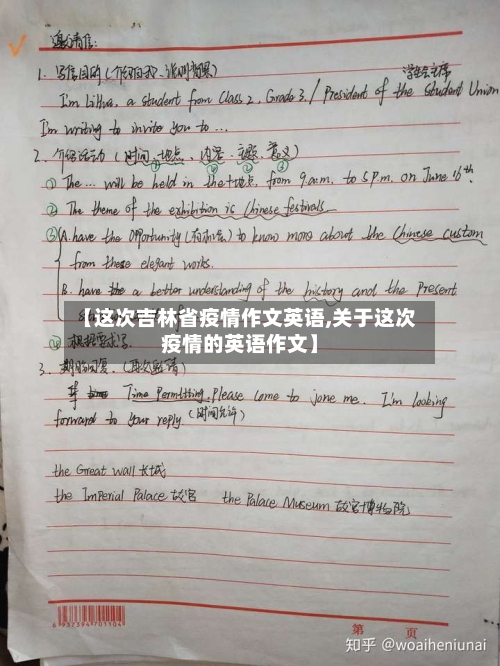 邀请信:
1. 写信目的 (介绍自我、说明背景) 学生会主席
I'm LiHua, a student from Class 2, Grade 3. / President of the student Union
I'm writing to invite you to ...
2. 介绍活动 (时间、地点、内容、主题、意义)
① The ... will be held in the+地点, from 9 a.m. to 5 P.m. on June 16th.
② The theme of the exhibition is Chinese festivals
③ A. have the opportunity (有机会) to know more about the Chinese custom
from these elegant works.
B. have a better understanding of the history and the present
【这次吉林省疫情作文英语,关于这次
疫情的英语作文】
④ 根据要求写
3. 期盼回复 (再次邀请)
Time Permitting, Please come to jone me. I'm looking
forward to your reply. (时间允许)
the Great Wall 长城
the ImPerial Palace 故宫 the Palace Museum 故宫博物院
6 937394 701104
第 页
知乎 @woaiheniunai